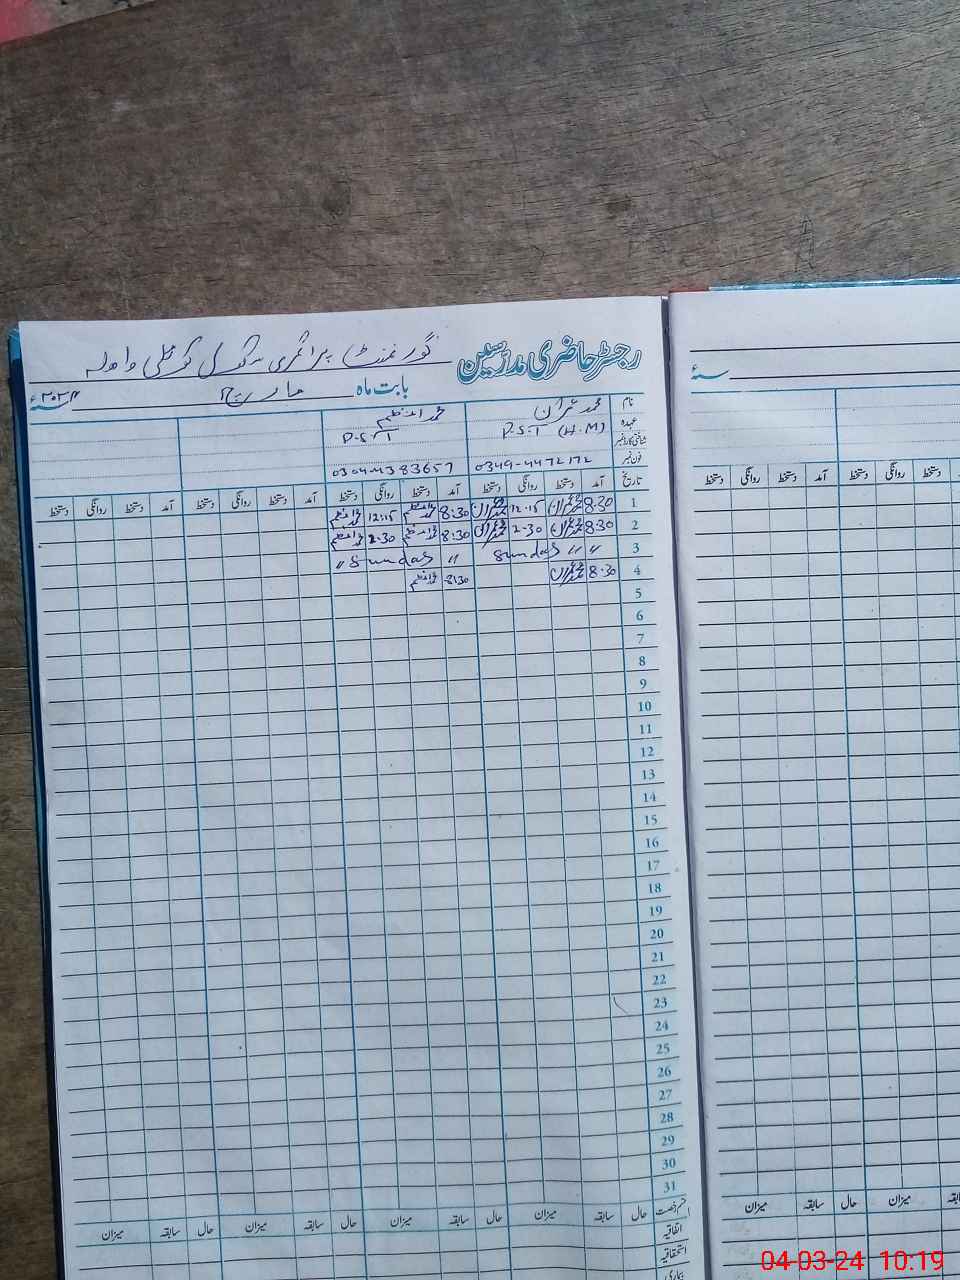 رجسٹر حاضری مدرسین گورنمنٹ پرائمری سکول
بابت ماہ مارچ ۲۰۲۴ سنۂ
نام محمد عمران محمد اعظم
عہدہ P.S.T (H.M) P.S.T
شناختی کارڈ نمبر
فون نمبر 0349-4472172 0304-4383657
تاریخ آمد دستخط روانگی دستخط آمد دستخط روانگی دستخط آمد دستخط روانگی دستخط آمد دستخط روانگی دستخط
1 8:30 محمد عمران 12:15 محمد عمران 8:30 محمد اعظم 12:15 محمد اعظم
2 8:30 محمد عمران 2-30 محمد عمران 8:30 محمد اعظم 2-30 محمد اعظم
3 " " Sunday " Sunday "
4 8:30 محمد عمران 8:30 محمد اعظم
5
6
7
8
9
10
11
12
13
14
15
16
17
18
19
20
21
22
23
24
25
26
27
28
29
30
31
قسم رخصت حال سابقہ میزان حال سابقہ میزان حال سابقہ میزان حال سابقہ میزان
اتفاقیہ
استحقاقیہ
بیماری
سنۂ
آمد دستخط روانگی دستخط
روانگی دستخط
حال سابقہ میزان
حال سابقہ میزان
04-03-24 10:19